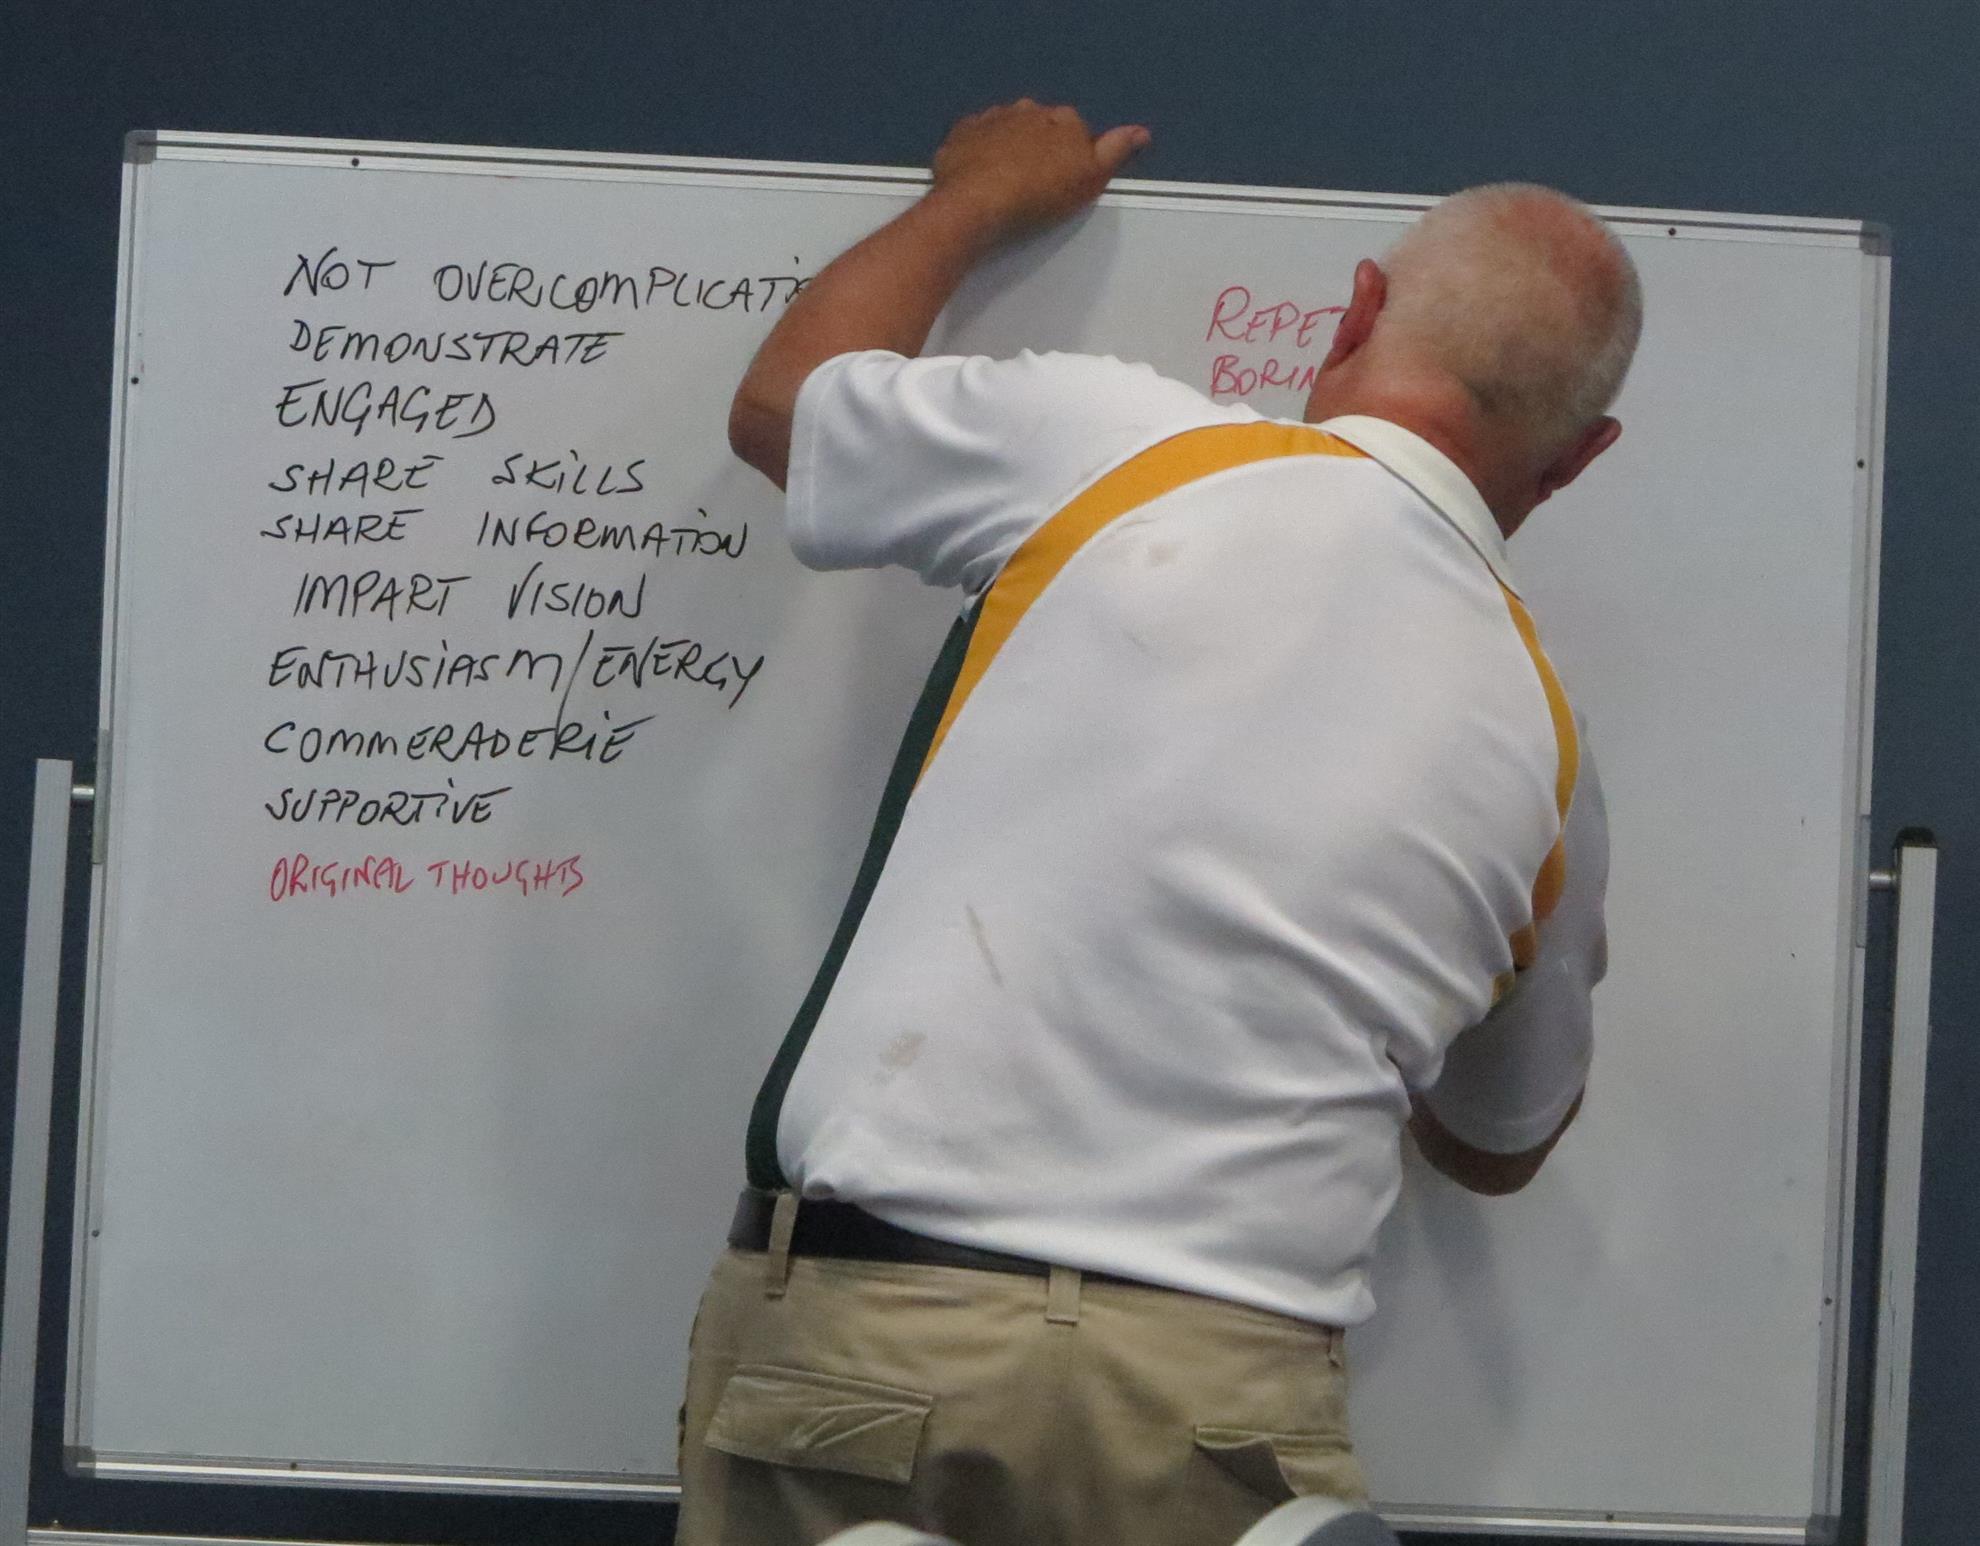 NOT OVERCOMPLICATI
DEMONSTRATE
ENGAGED
SHARE SKILLS
SHARE INFORMATION
IMPART VISION
ENTHUSIASM/ENERGY
COMMERADERIE
SUPPORTIVE
ORIGINAL THOUGHTS
REPET
BORIN